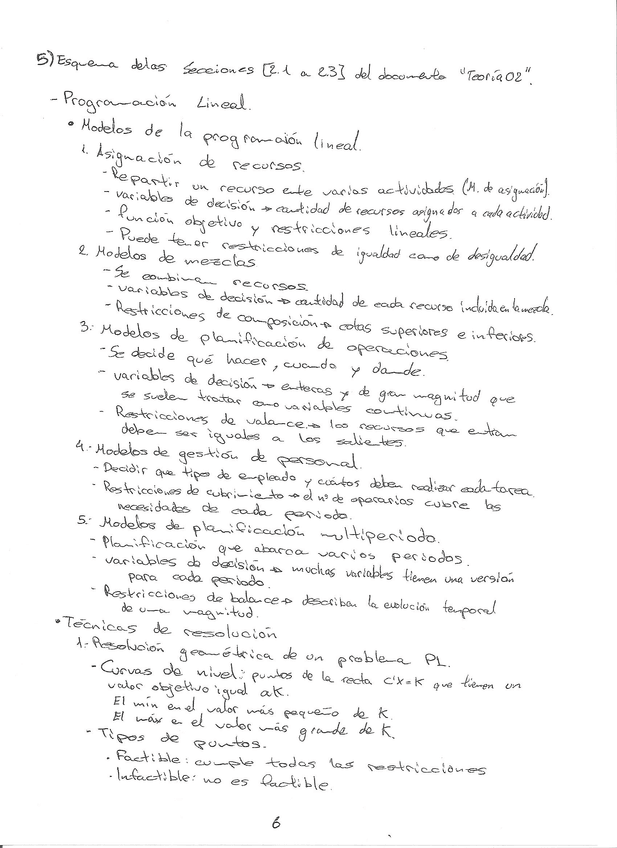 5) Esquema delas Secciones [2.1 a 2.3] del documento "Teoría02".
- Programación Lineal.
• Modelos de la programación lineal.
1. Asignación de recursos.
- Repartir un recurso ente varias actividades (M. de asignación).
- variables de decisión → cantidad de recursos asignados a cada actividad.
- función objetivo y restricciones lineales.
- Puede tener restricciones de igualdad como de desigualdad.
2. Modelos de mezclas
- Se combinan recursos.
- variables de decisión → cantidad de cada recurso incluida en la mezcla.
- Restricciones de composición → cotas superiores e inferiors.
3.- Modelos de planificación de operaciones.
- Se decide qué hacer, cuando y donde.
- variables de decisión → enteras y de gran magnitud que
se suelen tratar como variables continuas.
- Restricciones de valance → los recursos que entran
deben ser iguales a los salientes.
4.- Modelos de gestión de personal.
- Decidir que tipos de empleado y cuántos deben realizar cada tarea.
- Restricciones de cubrimiento → el nº de operarios cubre las
necesidades de cada periodo.
5.- Modelos de planificación multiperiodo.
- Planificación que abarca varios periodos.
- variables de decisión → muchas variables tienen una versión
para cada periodo.
- Restricciones de balance → describan la evolución temporal
de una magnitud.
• Técnicas de resolución
1.- Resolución geométrica de un problema PL.
- Curvas de nivel: puntos de la recta c'x=K que tienen un
valor objetivo igual a K.
El mín en el valor más pequeño de K.
El máx en el valor más grande de K.
- Tipos de puntos.
· Factible: cumple todas las restricciones
· Infactible: no es factible.
6